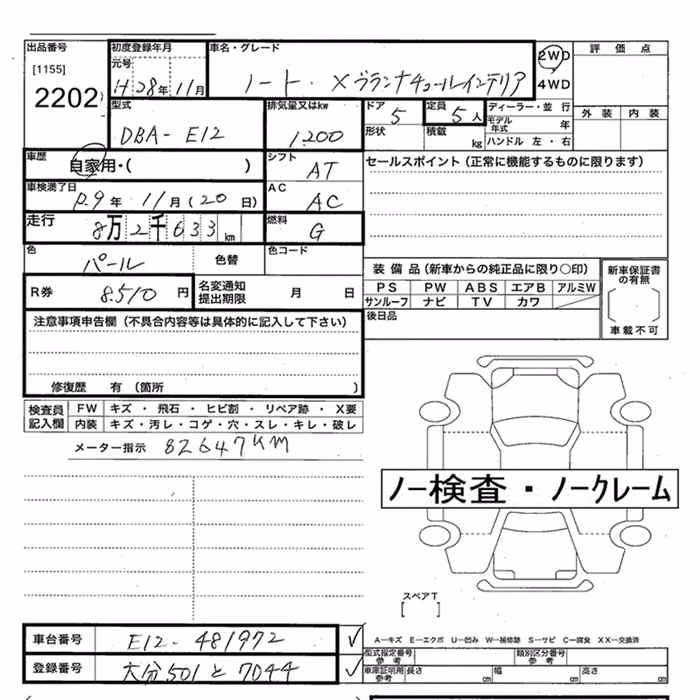 出品番号 初度登録年月 車名・グレード 2WD 評価点
[1155] 元号
2202 H28年11月 ノート・Xブランナチュールインテリア 4WD
型式 排気量又はkw ドア 定員 ディーラー・並行 外装 内装
DBA-E12 1,200 5 5人 モデル年式 年
形状 積載 kg ハンドル 左・右
車歴 シフト セールスポイント(正常に機能するものに限ります)
自家用・( ) AT
車検満了日 AC
R9年11月(20日) AC
走行 燃料
8万2千633km G
色 色替 色コード
パール
装備品(新車からの純正品に限り○印) 新車保証書の有無
R券 8,510円 名変通知提出期限 月 日 PS PW ABS エアB アルミW
サンルーフ ナビ TV カワ
後日品 車載不可
注意事項申告欄(不具合内容等は具体的に記入して下さい)
修復歴 有(箇所 )
検査員記入欄 FW キズ・飛石・ヒビ割・リペア跡・X要
内装 キズ・汚レ・コゲ・穴・スレ・キレ・破レ
メーター指示 82647KM
ノー検査・ノークレーム
スペアT
[ ]
車台番号 E12-481972 ✓
A－キズ E－エクボ U－凹み W－補修跡 S－サビ C－腐食 XX－交換済
型式指定番号 参考 類別区分番号 参考
登録番号 大分501と7044 ✓ 車庫証明用参考 長さ cm 幅 cm 高さ cm